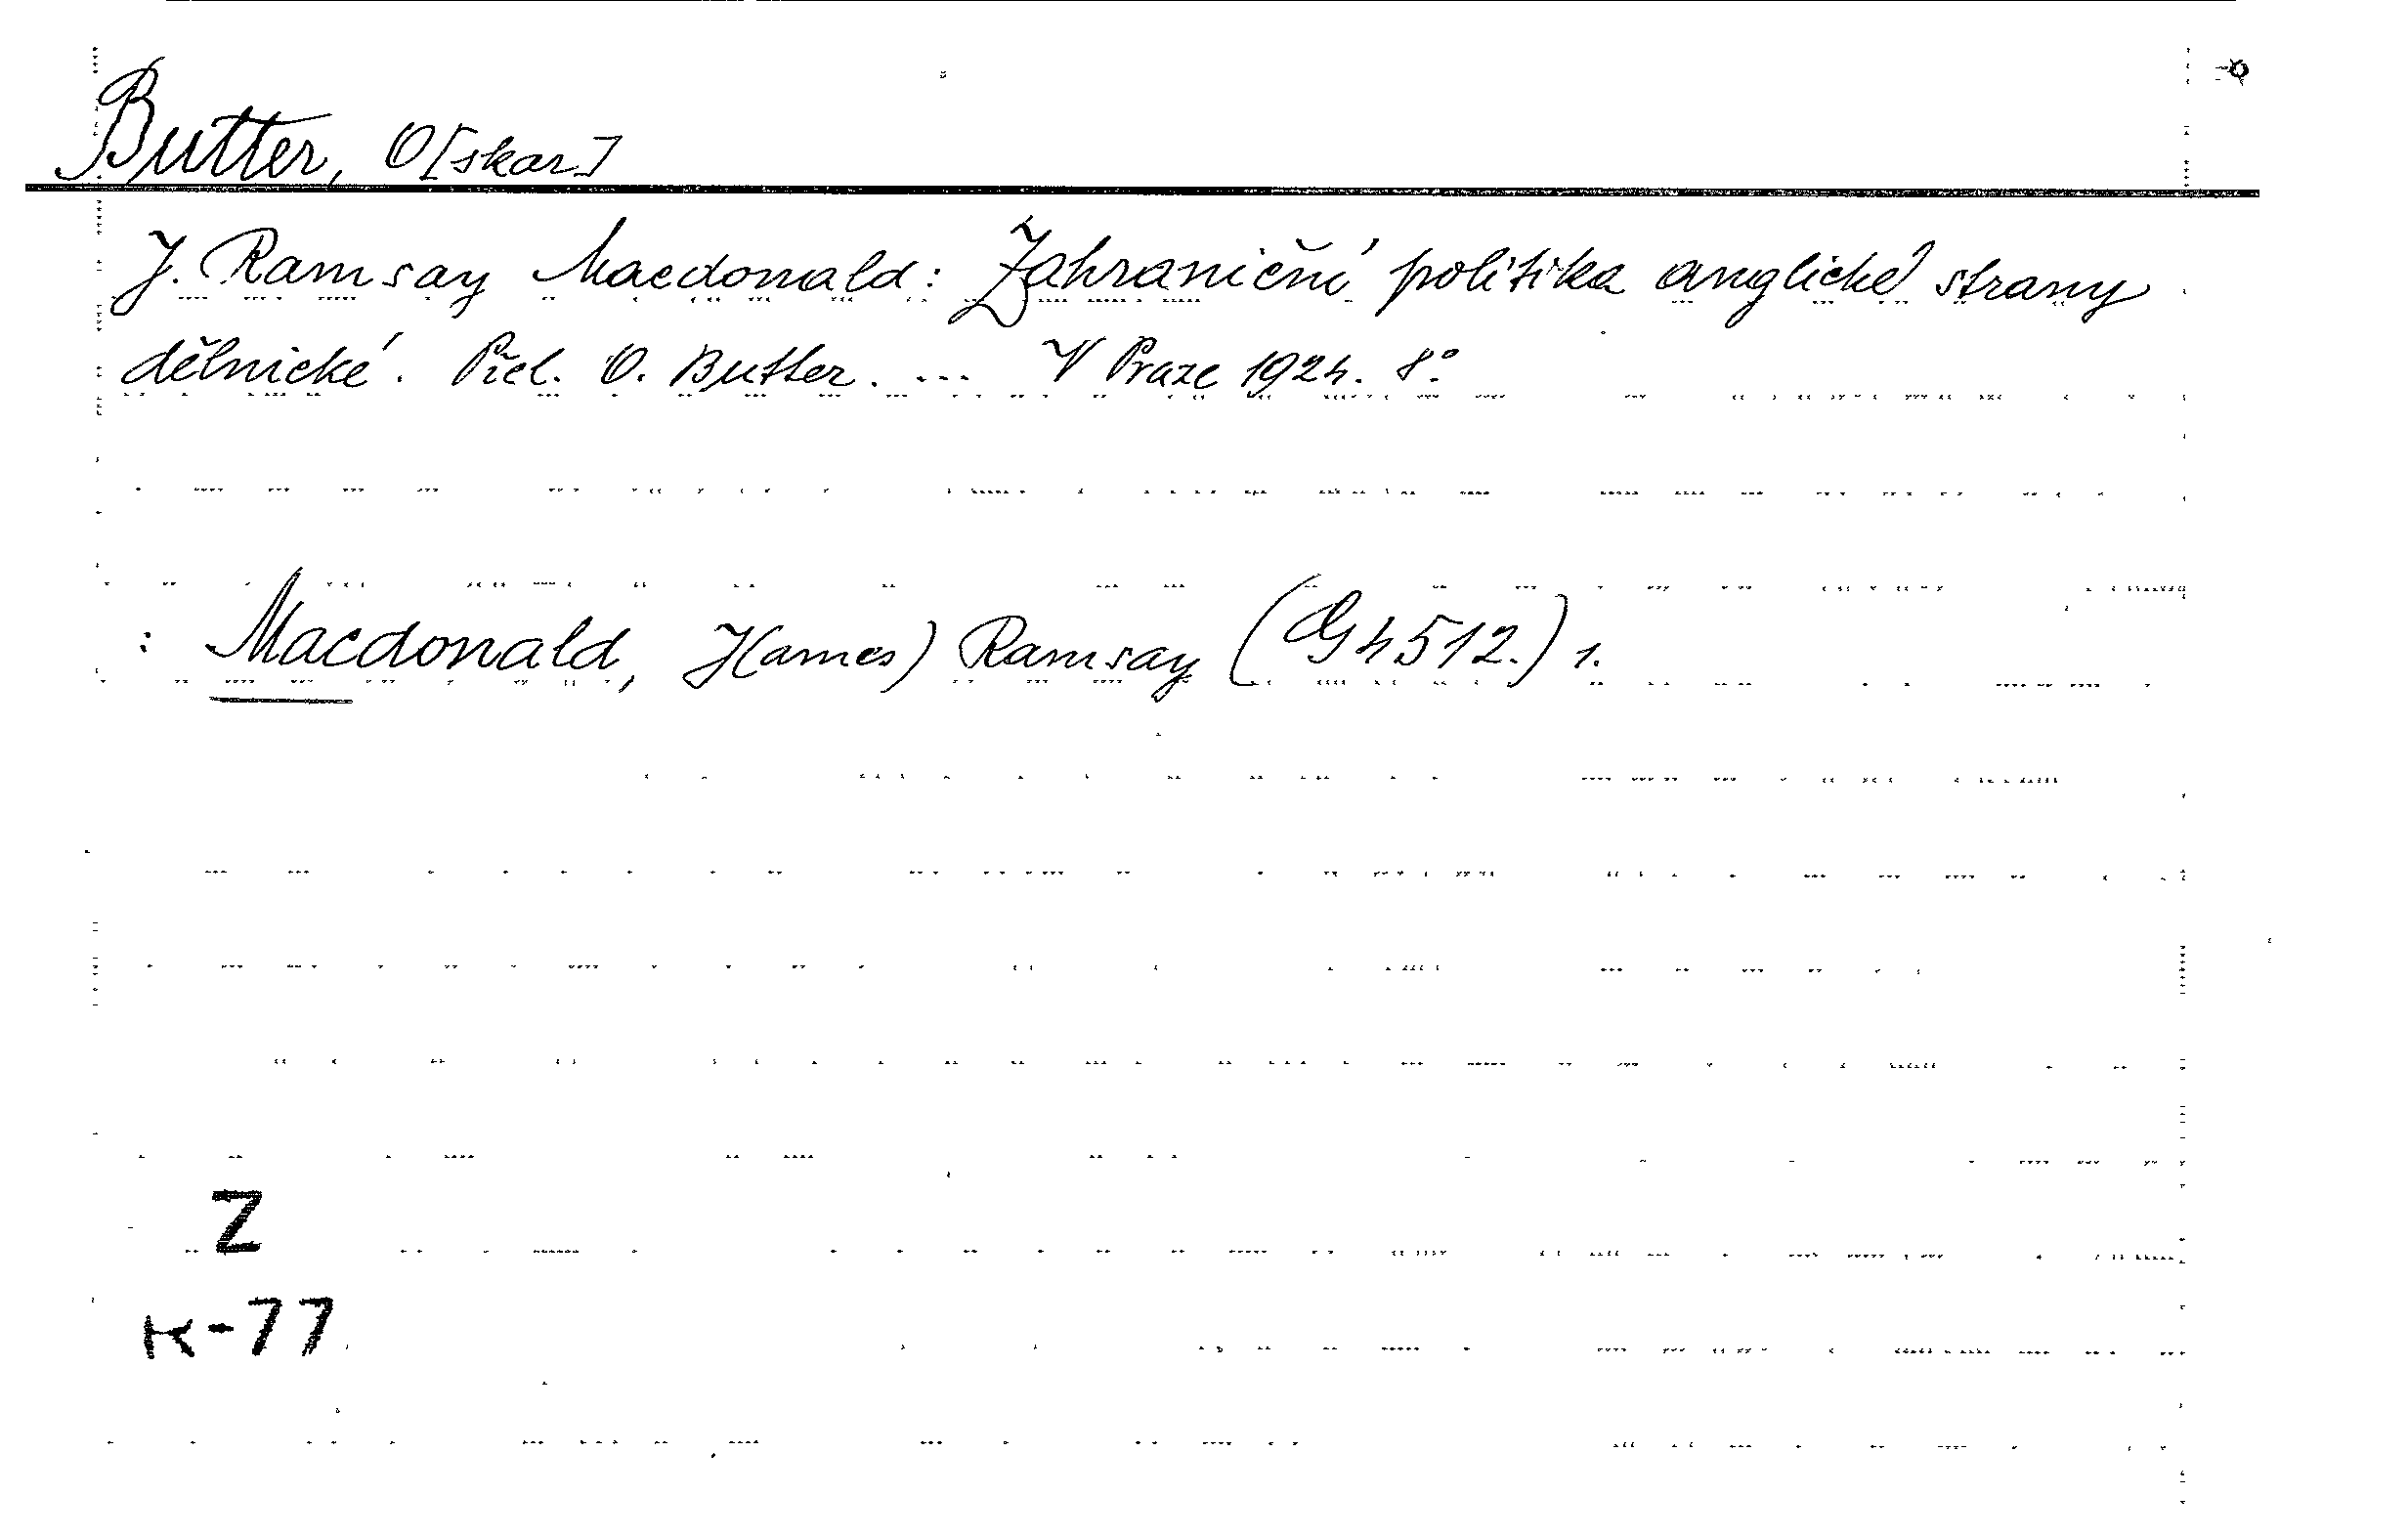 Butter, O[skar]
J. Ramsay Macdonald: Zahraniční politika anglické strany
dělnické. Přel. O. Butter. ... V Praze 1924. 8°.
: Macdonald, J(ames) Ramsay (G 4512.) 1.
Z
K-77